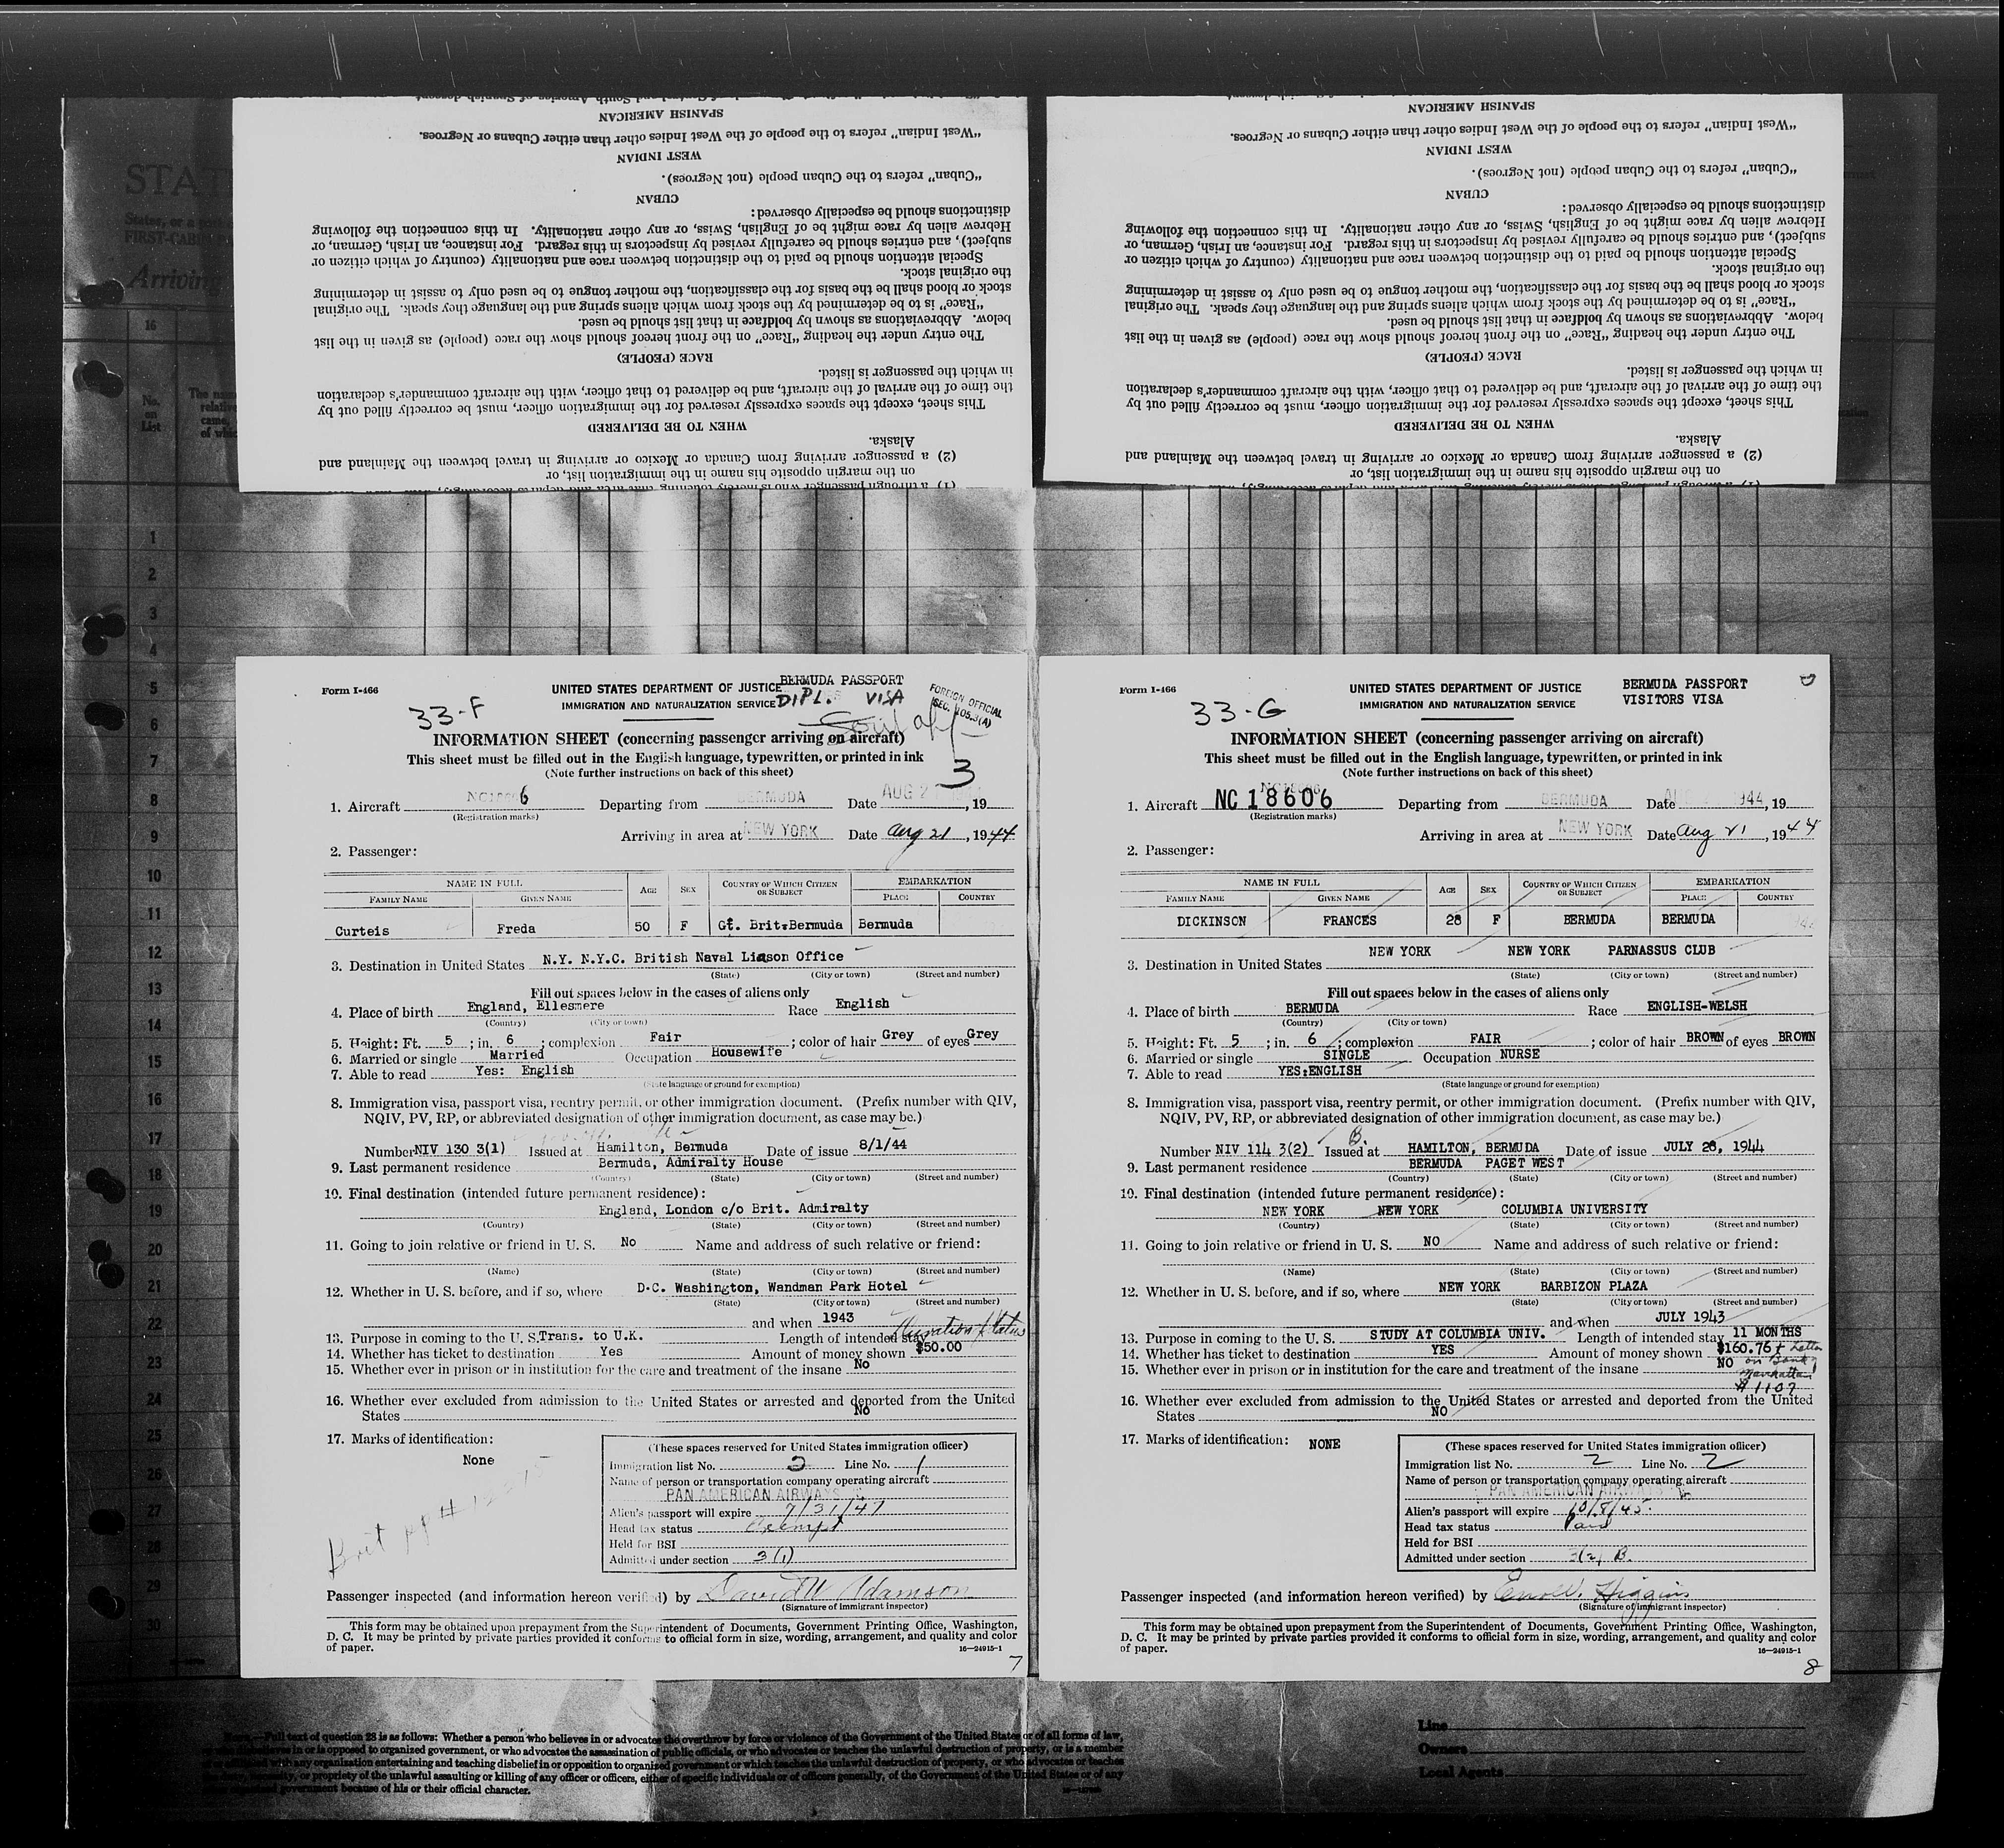 SPANISH AMERICAN
"West Indian" refers to the people of the West Indies other than either Cubans or Negroes.
WEST INDIAN
"Cuban" refers to the Cuban people (not Negroes).
CUBAN
distinctions should be especially observed:
Hebrew alien by race might be of English, Swiss, or any other nationality. In this connection the following
subject), and entries should be carefully revised by inspectors in this regard. For instance, an Irish, German, or
Special attention should be paid to the distinction between race and nationality (country of which citizen or
the original stock.
stock or blood shall be the basis for the classification, the mother tongue to be used only to assist in determining
"Race" is to be determined by the stock from which aliens spring and the language they speak. The original
below. Abbreviations as shown by boldface in that list should be used.
The entry under the heading "Race" on the front hereof should show the race (people) as given in the list
RACE (PEOPLE)
in which the passenger is listed.
the time of the arrival of the aircraft, and be delivered to that officer, with the aircraft commander's declaration
This sheet, except the spaces expressly reserved for the immigration officer, must be correctly filled out by
WHEN TO BE DELIVERED
Alaska.
(2) a passenger arriving from Canada or Mexico or arriving in travel between the Mainland and
on the margin opposite his name in the immigration list, or
SPANISH AMERICAN
"West Indian" refers to the people of the West Indies other than either Cubans or Negroes.
WEST INDIAN
"Cuban" refers to the Cuban people (not Negroes).
CUBAN
distinctions should be especially observed:
Hebrew alien by race might be of English, Swiss, or any other nationality. In this connection the following
subject), and entries should be carefully revised by inspectors in this regard. For instance, an Irish, German, or
Special attention should be paid to the distinction between race and nationality (country of which citizen or
the original stock.
stock or blood shall be the basis for the classification, the mother tongue to be used only to assist in determining
"Race" is to be determined by the stock from which aliens spring and the language they speak. The original
below. Abbreviations as shown by boldface in that list should be used.
The entry under the heading "Race" on the front hereof should show the race (people) as given in the list
RACE (PEOPLE)
in which the passenger is listed.
the time of the arrival of the aircraft, and be delivered to that officer, with the aircraft commander's declaration
This sheet, except the spaces expressly reserved for the immigration officer, must be correctly filled out by
WHEN TO BE DELIVERED
Alaska.
(2) a passenger arriving from Canada or Mexico or arriving in travel between the Mainland and
on the margin opposite his name in the immigration list, or
STAT
Arriving
16
No. on List
1
2
3
4
5
6
7
8
9
10
11
12
13
14
15
16
17
18
19
20
21
22
23
24
25
26
27
28
29
30
Form I-466
33-F
UNITED STATES DEPARTMENT OF JUSTICE
IMMIGRATION AND NATURALIZATION SERVICE
BERMUDA PASSPORT
DIPL. VISA
FOREIGN OFFICIAL
SEC. 105.3(A)
INFORMATION SHEET (concerning passenger arriving on aircraft)
This sheet must be filled out in the English language, typewritten, or printed in ink
(Note further instructions on back of this sheet)
3
1. Aircraft NC18606 Departing from BERMUDA Date AUG 2 , 19
(Registration marks)
Arriving in area at NEW YORK Date Aug 21, 1944
2. Passenger:
NAME IN FULL AGE SEX COUNTRY OF WHICH CITIZEN OR SUBJECT EMBARKATION
FAMILY NAME GIVEN NAME PLACE COUNTRY
Curteis Freda 50 F Gt. Brit:Bermuda Bermuda
3. Destination in United States N.Y. N.Y.C. British Naval Liason Office
(State) (City or town) (Street and number)
Fill out spaces below in the cases of aliens only
4. Place of birth England, Ellesmere Race English
(Country) (City or town)
5. Height: Ft. 5 ; in. 6 ; complexion Fair ; color of hair Grey of eyes Grey
6. Married or single Married Occupation Housewife
7. Able to read Yes: English
(State language or ground for exemption)
8. Immigration visa, passport visa, reentry permit, or other immigration document. (Prefix number with QIV,
NQIV, PV, RP, or abbreviated designation of other immigration document, as case may be.)
Number NIV 130 3(1) Issued at Hamilton, Bermuda Date of issue 8/1/44
9. Last permanent residence Bermuda, Admiralty House
(Country) (State) (City or town) (Street and number)
10. Final destination (intended future permanent residence):
England, London c/o Brit. Admiralty
(Country) (State) (City or town) (Street and number)
11. Going to join relative or friend in U. S. No Name and address of such relative or friend:
(Name) (State) (City or town) (Street and number)
12. Whether in U. S. before, and if so, where D.C. Washington, Wandman Park Hotel
(State) (City or town) (Street and number)
and when 1943
13. Purpose in coming to the U. S. Trans. to U.K. Length of intended stay
14. Whether has ticket to destination Yes Amount of money shown $50.00
15. Whether ever in prison or in institution for the care and treatment of the insane No
16. Whether ever excluded from admission to the United States or arrested and deported from the United
States No
17. Marks of identification:
None
(These spaces reserved for United States immigration officer)
Immigration list No. 2 Line No. 1
Name of person or transportation company operating aircraft
PAN AMERICAN AIRWAYS
Alien's passport will expire 7/31/47
Head tax status Exempt
Held for BSI
Admitted under section 3(1)
Passenger inspected (and information hereon verified) by David W Adamson
(Signature of immigrant inspector)
This form may be obtained upon prepayment from the Superintendent of Documents, Government Printing Office, Washington,
D. C. It may be printed by private parties provided it conforms to official form in size, wording, arrangement, and quality and color
of paper. 16—24915-1
7
Form I-466
33-G
UNITED STATES DEPARTMENT OF JUSTICE
IMMIGRATION AND NATURALIZATION SERVICE
BERMUDA PASSPORT
VISITORS VISA
INFORMATION SHEET (concerning passenger arriving on aircraft)
This sheet must be filled out in the English language, typewritten, or printed in ink
(Note further instructions on back of this sheet)
1. Aircraft NC 18606 Departing from BERMUDA Date 1944, 19
(Registration marks)
Arriving in area at NEW YORK Date Aug 21 1944
2. Passenger:
NAME IN FULL AGE SEX COUNTRY OF WHICH CITIZEN OR SUBJECT EMBARKATION
FAMILY NAME GIVEN NAME PLACE COUNTRY
DICKINSON FRANCES 28 F BERMUDA BERMUDA
3. Destination in United States NEW YORK NEW YORK PARNASSUS CLUB
(State) (City or town) (Street and number)
Fill out spaces below in the cases of aliens only
4. Place of birth BERMUDA Race ENGLISH-WELSH
(Country) (City or town)
5. Height: Ft. 5 ; in. 6 ; complexion FAIR ; color of hair BROWN of eyes BROWN
6. Married or single SINGLE Occupation NURSE
7. Able to read YES:ENGLISH
(State language or ground for exemption)
8. Immigration visa, passport visa, reentry permit, or other immigration document. (Prefix number with QIV,
NQIV, PV, RP, or abbreviated designation of other immigration document, as case may be.)
Number NIV 114 3(2) B. Issued at HAMILTON, BERMUDA Date of issue JULY 28, 1944
9. Last permanent residence BERMUDA PAGET WEST
(Country) (State) (City or town) (Street and number)
10. Final destination (intended future permanent residence):
NEW YORK NEW YORK COLUMBIA UNIVERSITY
(Country) (State) (City or town) (Street and number)
11. Going to join relative or friend in U. S. NO Name and address of such relative or friend:
(Name) (State) (City or town) (Street and number)
12. Whether in U. S. before, and if so, where NEW YORK BARBIZON PLAZA
(State) (City or town) (Street and number)
and when JULY 1943
13. Purpose in coming to the U. S. STUDY AT COLUMBIA UNIV. Length of intended stay 11 MONTHS
14. Whether has ticket to destination YES Amount of money shown $160.76 + Letter
15. Whether ever in prison or in institution for the care and treatment of the insane NO on Bank
Manhattan
$1107
16. Whether ever excluded from admission to the United States or arrested and deported from the United
States NO
17. Marks of identification: NONE
(These spaces reserved for United States immigration officer)
Immigration list No. 2 Line No. 2
Name of person or transportation company operating aircraft
PAN AMERICAN AIRWAYS
Alien's passport will expire 10/8/45.
Head tax status Paid
Held for BSI
Admitted under section 3(2) B.
Passenger inspected (and information hereon verified) by Higgins
(Signature of immigrant inspector)
This form may be obtained upon prepayment from the Superintendent of Documents, Government Printing Office, Washington,
D. C. It may be printed by private parties provided it conforms to official form in size, wording, arrangement, and quality and color
of paper. 16—24915-1
8
Full text of question 28 is as follows: Whether a person who believes in or advocates the overthrow by force or violence of the Government of the United States or of all forms of law,
in or is opposed to organized government, or who advocates the assassination of public officials, or who advocates or teaches the unlawful destruction of property, or is a member
any organization entertaining and teaching disbelief in or opposition to organized government or which teaches the unlawful destruction of property, or who advocates or teaches
or propriety of the unlawful assaulting or killing of any officer or officers, either of specific individuals or of officers generally, of the Government of the United States or of any
government because of his or their official character.
Line
Owners
Local Agents